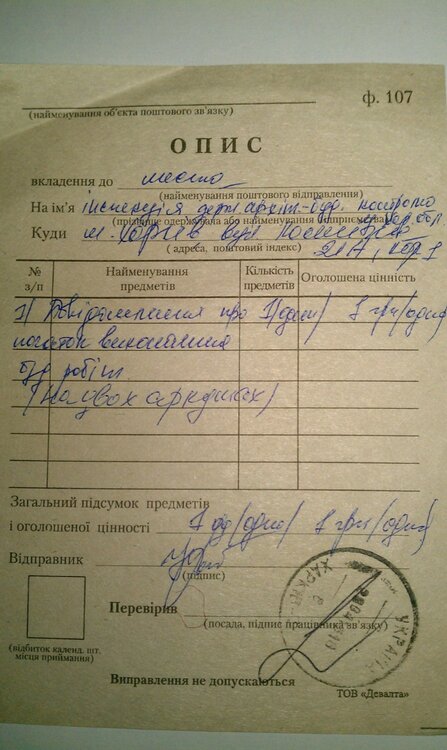 ф. 107
(найменування об'єкта поштового зв'язку)
ОПИС
вкладення до
(найменування поштового відправлення)
На ім'я інспекція держ. архіт-буд. контролю
(прізвище одержувача або найменування підприємства)
Куди м. Харків вул
(адреса, поштовий індекс)
21А, кор. 1
№ з/п
Найменування предметів
Кількість предметів
Оголошена цінність
1) Повідомлення про 1/один/ 1 грн/одна/
початок виконання
буд робіт
(на двох аркушах)
Загальний підсумок предметів
і оголошеної цінності 1 од/одна/ 1 грн/одна/
Відправник
(підпис)
Перевірив
(посада, підпис працівника зв'язку)
(відбиток календ. шт.
місця приймання)
УКРАЇНА
ХАРКІВ
Виправлення не допускаються
ТОВ «Девалта»